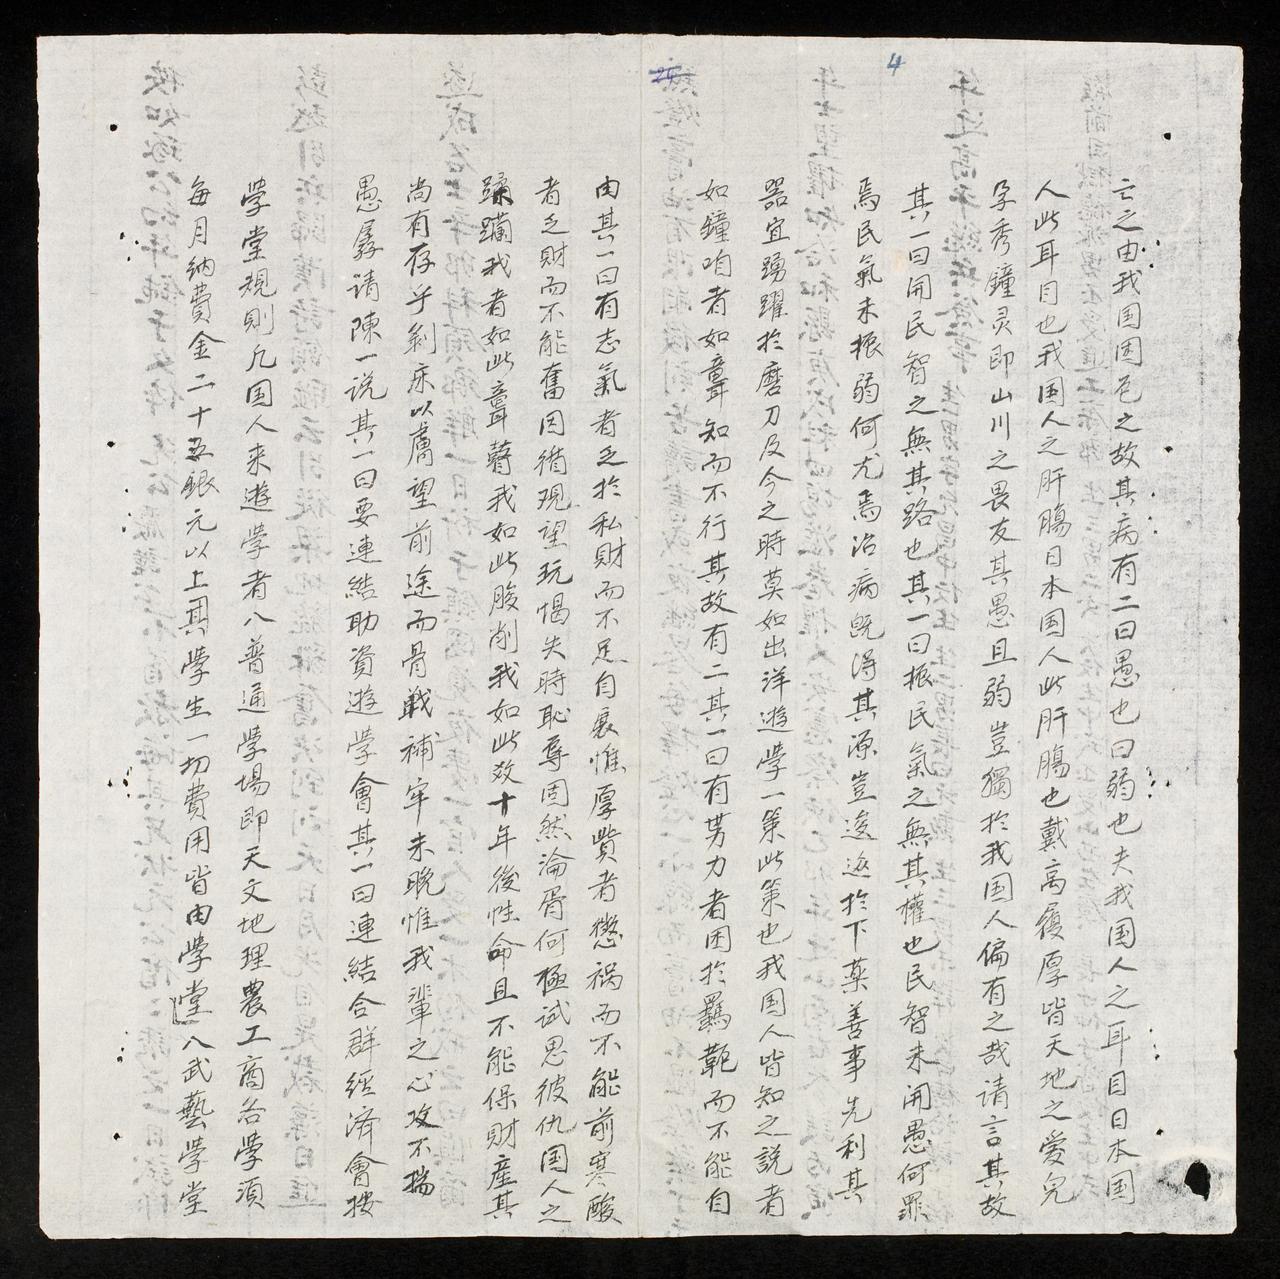 4
24
亡之由我国固危之故其病有二曰愚也曰弱也夫我国人之耳目日本国
人此耳目也我国人之肝腸日本国人此肝腸也戴高履厚皆天地之愛兒
孕秀鐘灵即山川之畏友其愚且弱豈獨於我国人偏有之哉请言其故
其一曰開民智之無其路也其一曰振民氣之無其權也民智未開愚何罪
焉民氣未振弱何尤焉治病既得其源豈逡巡於下薬善事先利其
器宜踴躍於磨刀及今之時莫如出洋遊學一策此策也我国人皆知之説者
如鐘咱者如聾知而不行其故有二其一曰有势力者困於羈靮而不能自
由其一曰有志氣者乏於私財而不足自衰惟厚貲者懲禍而不能前寒酸
者乏財而不能奮因循观望玩愒失時恥辱固然淪胥何極試思彼仇国人之
蹂躏我者如此聾瞽我如此朘削我如此数十年後性命且不能保財産其
尚有存乎剥床以膚望前途而骨戰補牢未晚惟我輩之心攻不揣
愚孱请陳一说其一曰要連結助資遊学會其一曰連結合群經済會按
学堂規則凡国人来遊学者入普通学場即天文地理農工商各学須
每月納費金二十五銀元以上其学生一切費用皆由学堂入武藝学堂